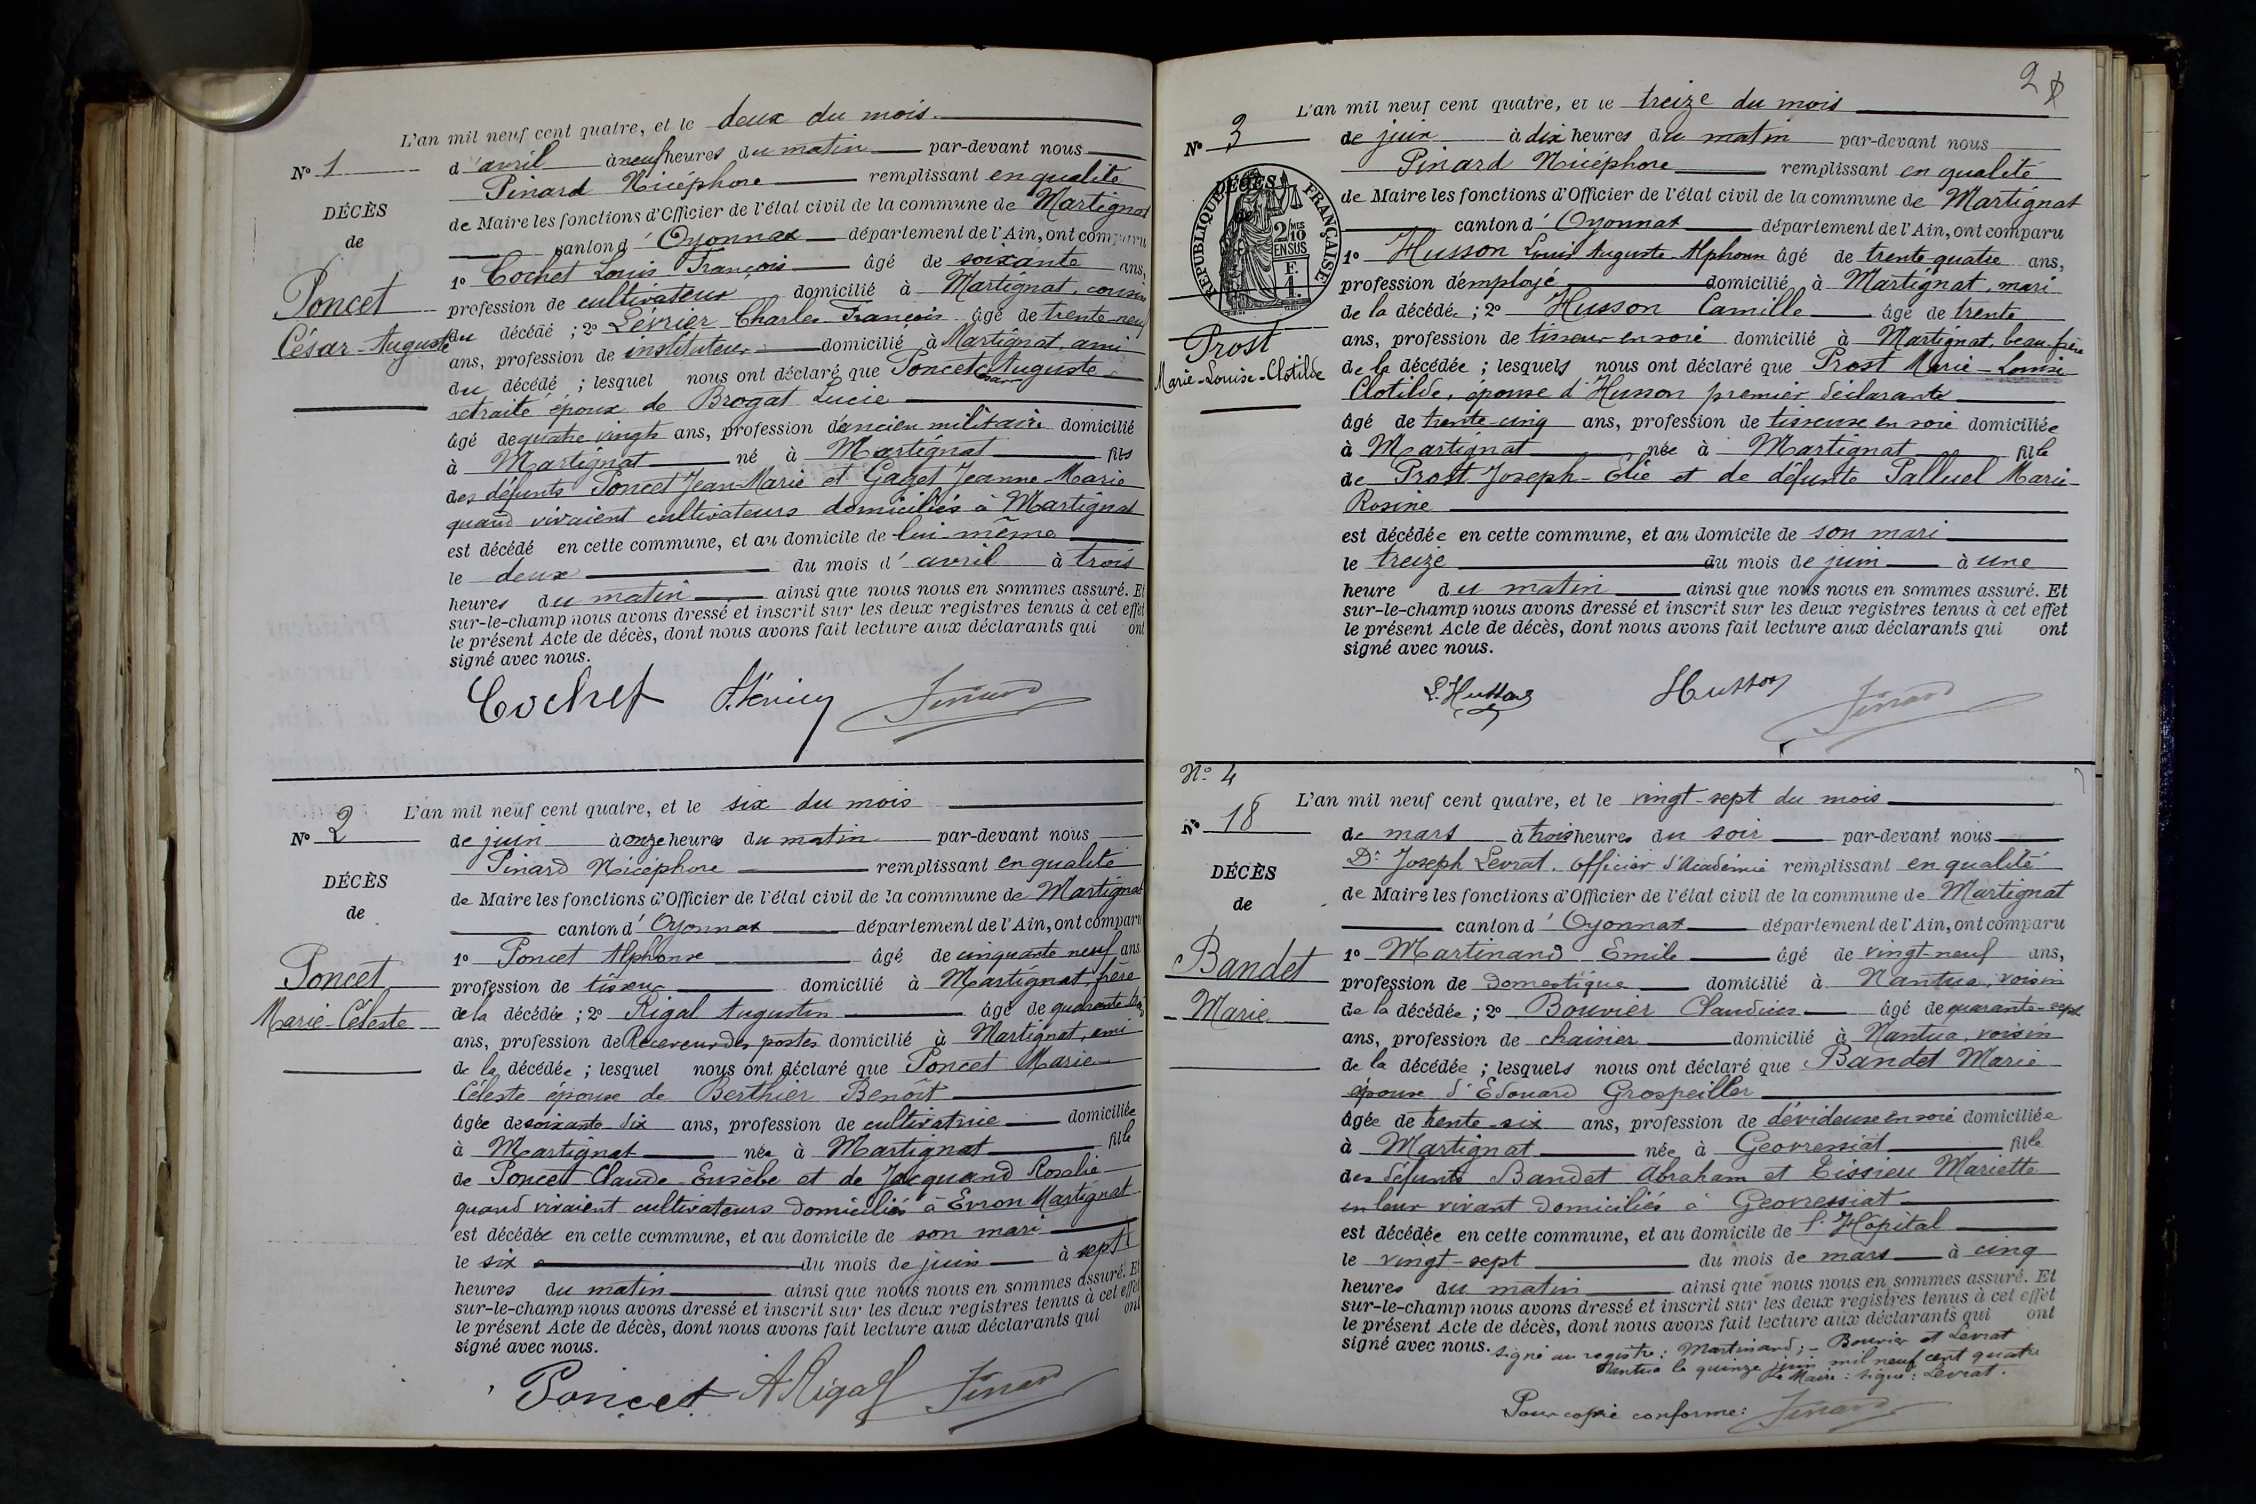 L'an mil neuf cent quatre, et le deux du mois
N° 1
d'avril à neuf heures du matin par-devant nous
Pinard Nicéphore remplissant en qualité
DÉCÈS
de Maire les fonctions d'Officier de l'état civil de la commune de Martignat
de
canton d'Oyonnax département de l'Ain, ont comparu
1° Cochet Louis François âgé de soixante ans,
Poncet
profession de cultivateur domicilié à Martignat, cousin
César-Auguste
du décédé ; 2° Lévrier Charles François âgé de trente-neuf
ans, profession de instituteur domicilié à Martignat, ami
du décédé ; lesquel nous ont déclaré que Poncet César Auguste
retraité époux de Brogat Lucie
âgé de quatre vingts ans, profession d'ancien militaire domicilié
à Martignat né à Martignat fils
des défunts Poncet Jean-Marie et Gaget Jeanne-Marie
quand vivaient cultivateurs domiciliés à Martignat
est décédé en cette commune, et au domicile de lui-même
le deux du mois d'avril à trois
heures du matin ainsi que nous nous en sommes assuré. Et
sur-le-champ nous avons dressé et inscrit sur les deux registres tenus à cet effet
le présent Acte de décès, dont nous avons fait lecture aux déclarants qui ont
signé avec nous.
Cochet Pinard
L'an mil neuf cent quatre, et le six du mois
N° 2
de juin à onze heures du matin par-devant nous
Pinard Nicéphore remplissant en qualité
DÉCÈS
de Maire les fonctions d'Officier de l'état civil de la commune de Martignat
de
canton d'Oyonnax département de l'Ain, ont comparu
1° Poncet Alphonse âgé de cinquante neuf ans
Poncet
profession de tisseur domicilié à Martignat, frère
Marie-Céleste
de la décédée ; 2° Rigal Augustin âgé de quarante
ans, profession de Receveur des postes domicilié à Martignat, ami
de la décédée ; lesquel nous ont déclaré que Poncet Marie
Céleste épouse de Berthier Benoît
âgée de soixante-dix ans, profession de cultivatrice domiciliée
à Martignat née à Martignat fille
de Poncet Claude-Eusèbe et de Jacquand Rosalie
quand vivaient cultivateurs domiciliés à Evron Martignat
est décédée en cette commune, et au domicile de son mari
le six du mois de juin à sept
heures du matin ainsi que nous nous en sommes assuré. Et
sur-le-champ nous avons dressé et inscrit sur les deux registres tenus à cet effet
le présent Acte de décès, dont nous avons fait lecture aux déclarants qui ont
signé avec nous.
Poncet A Rigal Pinard
2
L'an mil neuf cent quatre, et le treize du mois
N° 3
de juin à dix heures du matin par-devant nous
Pinard Nicéphore remplissant en qualité
DÉCÈS
RÉPUBLIQUE FRANÇAISE
2/10 MES
EN SUS
F.
1.
de Maire les fonctions d'Officier de l'état civil de la commune de Martignat
canton d'Oyonnax département de l'Ain, ont comparu
1° Husson Louis Auguste Alphonse âgé de trente quatre ans,
profession d'employé domicilié à Martignat, mari
de la décédée ; 2° Husson Camille âgé de trente
Prost
ans, profession de tisseur en soie domicilié à Martignat, beau-frère
Marie-Louise-Clotilde
de la décédée ; lesquels nous ont déclaré que Prost Marie-Louise
Clotilde, épouse d'Husson premier déclarante
âgé de trente-cinq ans, profession de tisseuse en soie domiciliée
à Martignat née à Martignat fille
de Prost Joseph-Elie et de défunte Palluel Marie-
Rosine
est décédée en cette commune, et au domicile de son mari
le treize du mois de juin à une
heure du matin ainsi que nous nous en sommes assuré. Et
sur-le-champ nous avons dressé et inscrit sur les deux registres tenus à cet effet
le présent Acte de décès, dont nous avons fait lecture aux déclarants qui ont
signé avec nous.
L. Husson Husson Pinard
N° 4
L'an mil neuf cent quatre, et le vingt-sept du mois
N° 18
de mars à trois heures du soir par-devant nous
Dr Joseph Levrat, officier d'Académie remplissant en qualité
DÉCÈS
de Maire les fonctions d'Officier de l'état civil de la commune de Martignat
de
canton d'Oyonnax département de l'Ain, ont comparu
1° Martinand Emile âgé de vingt-neuf ans,
Bandet
profession de domestique domicilié à Nantua, voisin
Marie
de la décédée ; 2° Bouvier Claudius âgé de quarante-sept
ans, profession de chaisier domicilié à Nantua, voisin
de la décédée ; lesquels nous ont déclaré que Bandet Marie
épouse d'Edouard Grospeiller
âgée de trente-six ans, profession de dévideuse en soie domiciliée
à Martignat née à Geovressiat fille
des défunts Bandet Abraham et Tissieu Mariette
en leur vivant domiciliés à Geovressiat
est décédée en cette commune, et au domicile de l'Hôpital
le vingt-sept du mois de mars à cinq
heures du matin ainsi que nous nous en sommes assuré. Et
sur-le-champ nous avons dressé et inscrit sur les deux registres tenus à cet effet
le présent Acte de décès, dont nous avons fait lecture aux déclarants qui ont
signé avec nous. Signé au registre : Martinand ; - Bouvier et Levrat
Nantua le quinze juin mil neuf cent quatre
Le Maire : signé : Levrat.
Pour copie conforme : Pinard